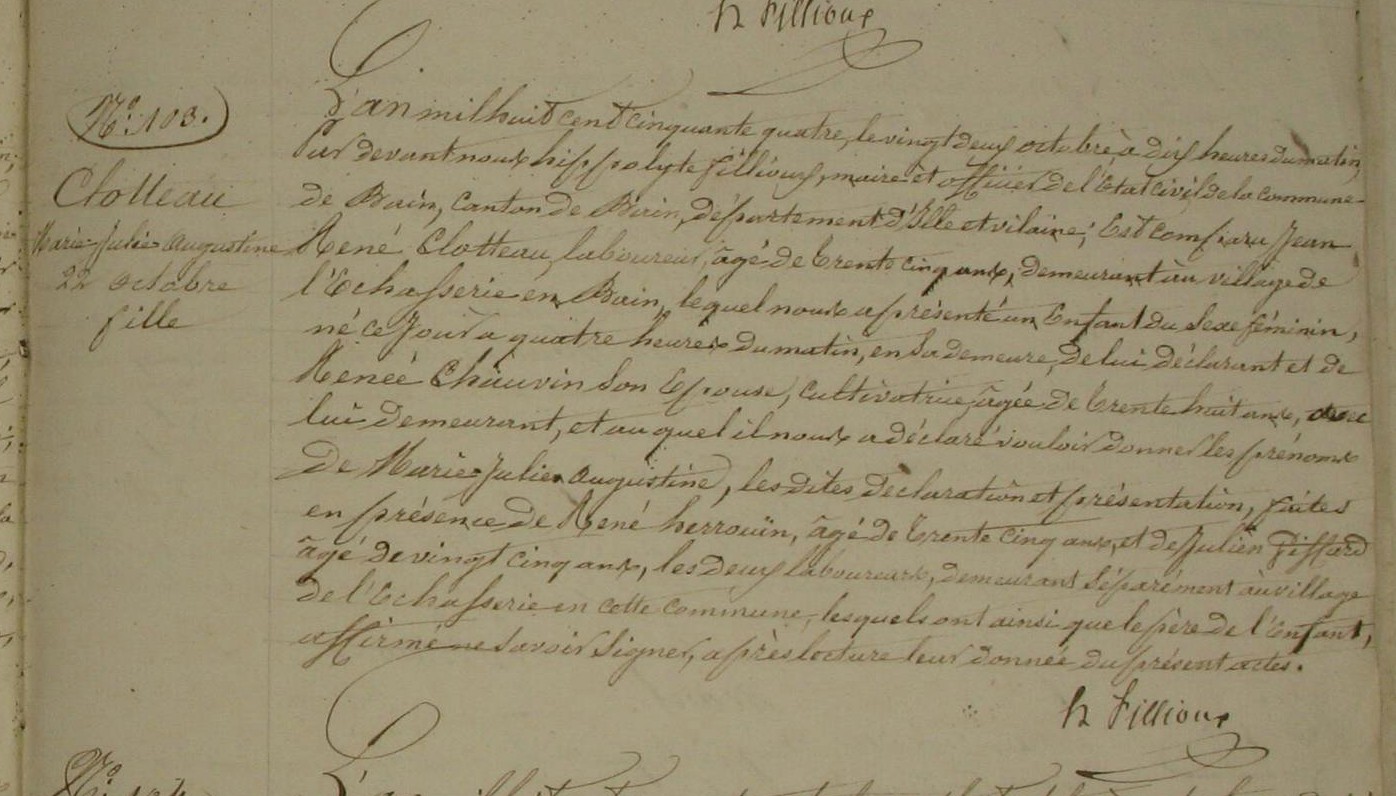 h fillioux
N° 103.
Clotteau
Marie Julie Augustine
22 octobre
fille
L'an mil huit cent cinquante quatre, le vingt deux octobre, à dix heures du matin,
Par devant nous hippolyte fillioux, maire et officier de l'Etat civil de la commune
de Bain, canton de Bain, département d'Ille et vilaine; Est comparu Jean
René Clotteau, laboureur, âgé de trente cinq ans, demeurant au village de
l'Echasserie en Bain, lequel nous a présenté un Enfant du sexe féminin,
né ce jour a quatre heures du matin, en sa demeure, de lui déclarant et de
Renée Chauvin son Epouse, cultivatrice, âgée de trente huit ans, avec
lui demeurant, et auquel il nous a déclaré vouloir donner les prénoms
De Marie Julie Augustine, les dites déclaration et présentation, faites
en présence de René herrouin, âgé de trente cinq ans, et de Julien Giffard
âgé de vingt cinq ans, les deux laboureurs, demeurant séparément au village
de l'Echasserie en cette commune, lesquels ont ainsi que le père de l'Enfant,
affirmé ne savoir signer, après lecture leur donnée du présent acte.
h fillioux
N°
L'an